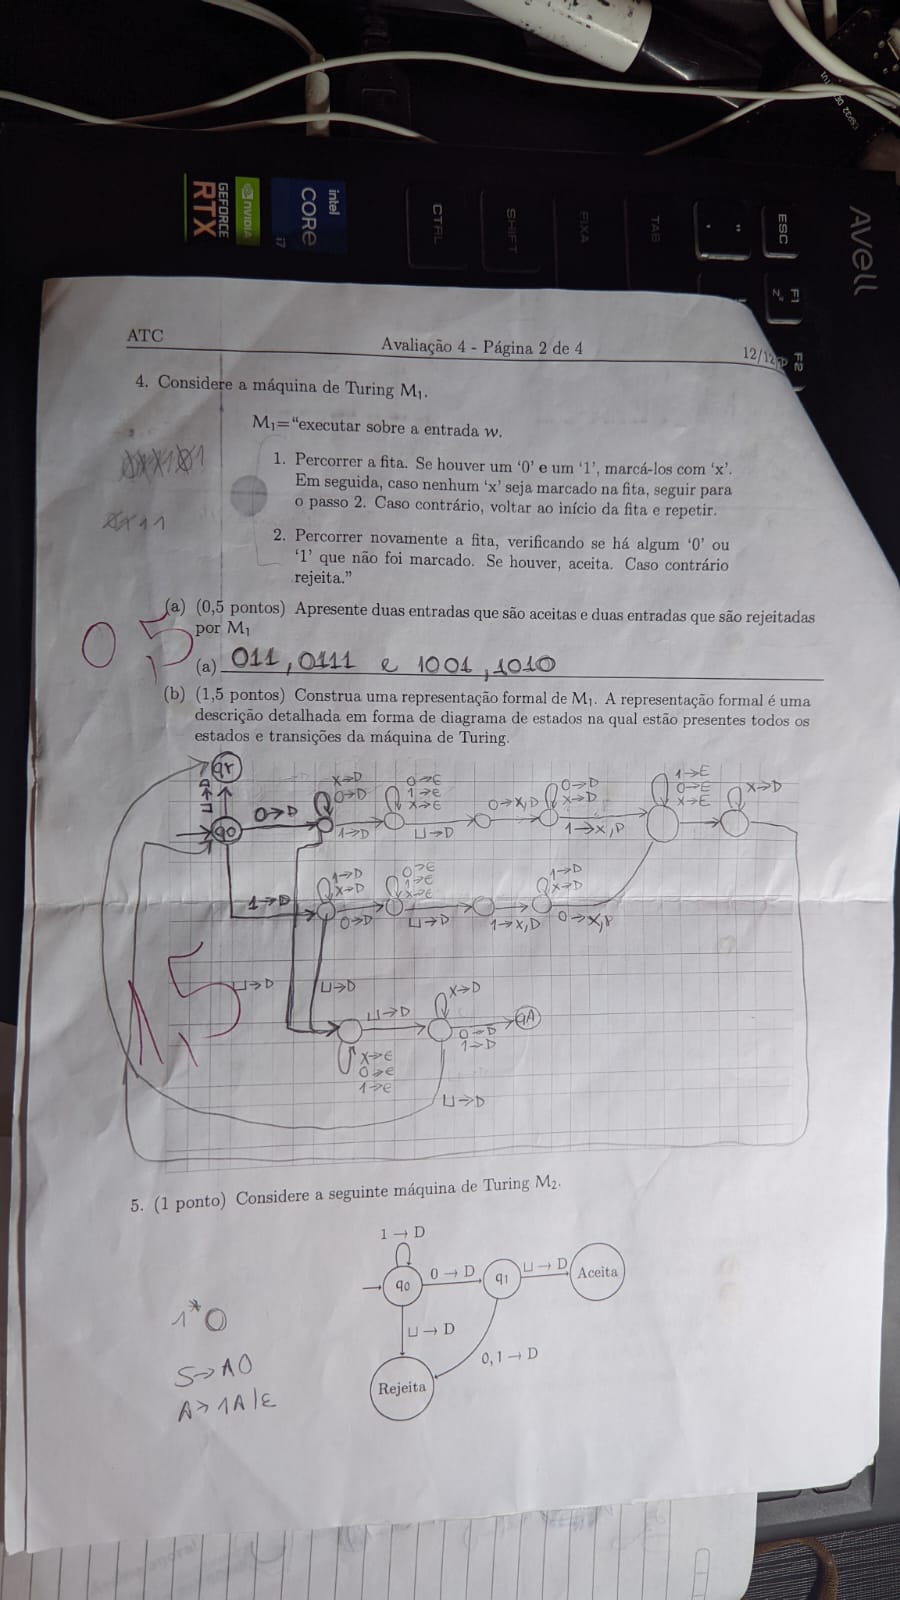 Avell
ESC
F1
F2
TAB
FIXA
SHIFT
CTRL
intel
CORE
i7
NVIDIA
GEFORCE
RTX
ATC
Avaliação 4 - Página 2 de 4
12/12
4. Considere a máquina de Turing M₁.
M₁=“executar sobre a entrada w.
1. Percorrer a fita. Se houver um ‘0’ e um ‘1’, marcá-los com ‘x’.
Em seguida, caso nenhum ‘x’ seja marcado na fita, seguir para
o passo 2. Caso contrário, voltar ao início da fita e repetir.
2. Percorrer novamente a fita, verificando se há algum ‘0’ ou
‘1’ que não foi marcado. Se houver, aceita. Caso contrário
rejeita.”
(a) (0,5 pontos) Apresente duas entradas que são aceitas e duas entradas que são rejeitadas
por M₁
0,5
(a) 011, 0111 e 1001, 1010
(b) (1,5 pontos) Construa uma representação formal de M₁. A representação formal é uma
descrição detalhada em forma de diagrama de estados na qual estão presentes todos os
estados e transições da máquina de Turing.
qr
⊔→D
q0
0→D
X→D
0→D
1→D
0→E
1→E
X→E
⊔→D
0→X,D
0→D
X→D
1→X,D
1→E
0→E
X→E
X→D
1→D
1→D
X→D
0→D
0→E
1→E
X→E
⊔→D
1→X,D
1→D
X→D
0→X,D
1,5
⊔→D
⊔→D
⊔→D
X→D
0→D
1→D
qA
X→E
0→E
1→E
⊔→D
5. (1 ponto) Considere a seguinte máquina de Turing M₂.
1 → D
q₀
0 → D
q₁
⊔ → D
Aceita
⊔ → D
0, 1 → D
Rejeita
1*0
S→A0
A→1A|ε